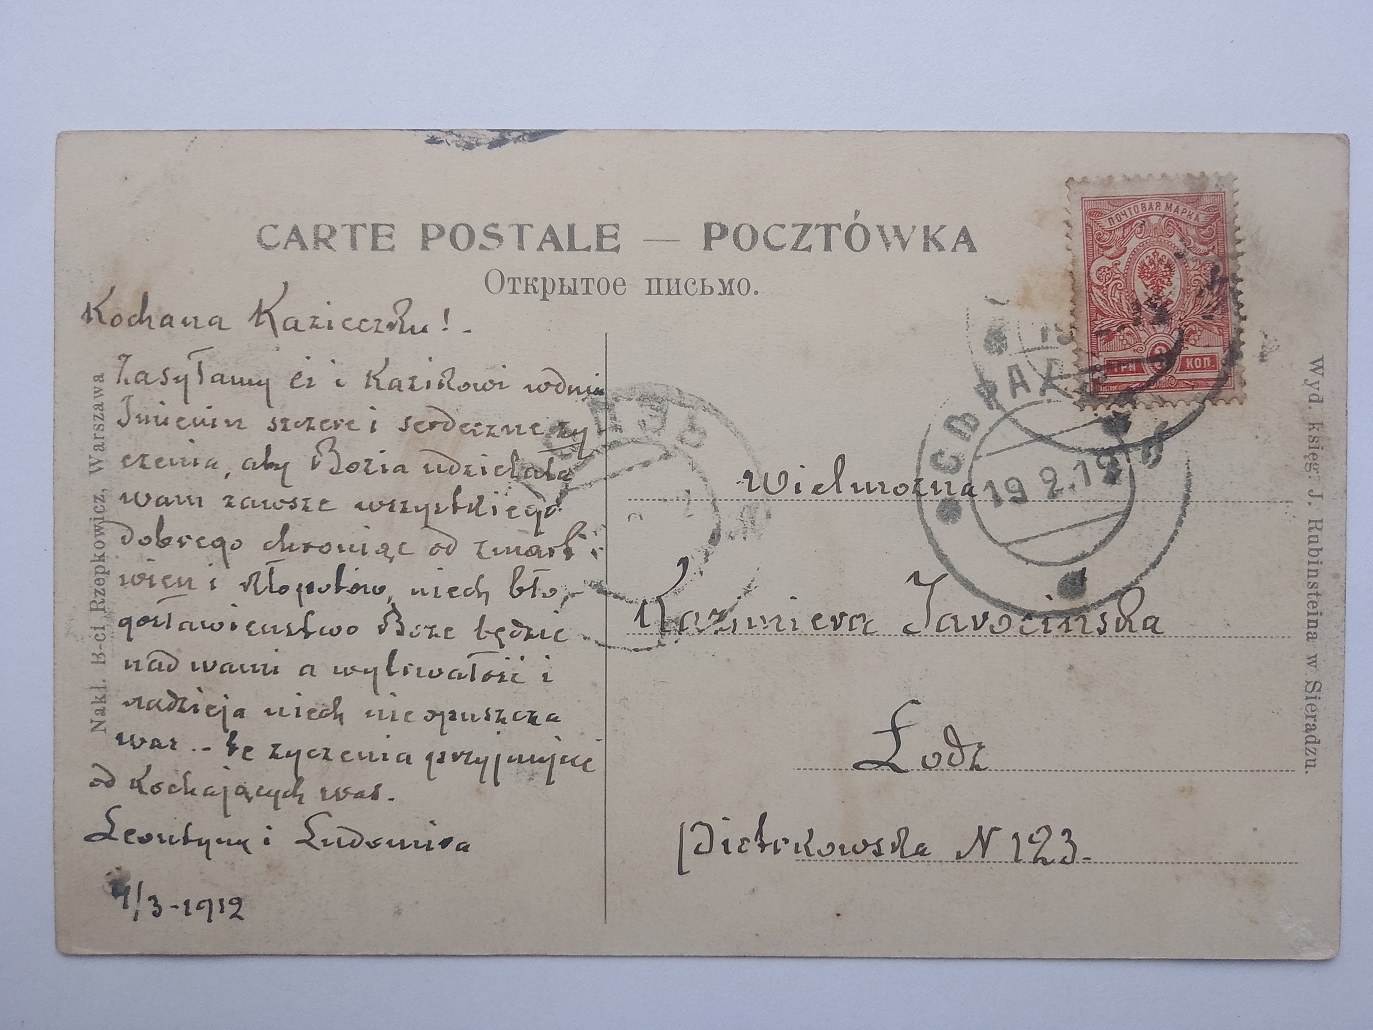 CARTE POSTALE — POCZTÓWKA
Открытое письмо.
ПОЧТОВАЯ МАРКА
ТРИ 3 КОП
СѢРАДЗ
19.2.12
Kochana Kazieczku!.
Zasyłamy ci i Kazikowi wdniu
Imienin szczere i serdeczne ży
czenia, aby Bozia udzielała
wam zawsze wszystkiego
dobrego chroniąc od zmart
wien i kłopotów, niech bło,-
gosławieństwo Boże będzie
nad wami a wytrwałość i
nadzieja niech nieopuszcza
was .- te życzenia przyjmijcie
od Kochających was.
Leontyna i Ludomira
4/3-1912
Wielmożna
Kazimiera Jarocińska
Łodz
Piotrkowska N 123.
Nakł. B-ci Rzepkowicz, Warszawa
Wyd. księg. J. Rubinsteina w Sieradzu.